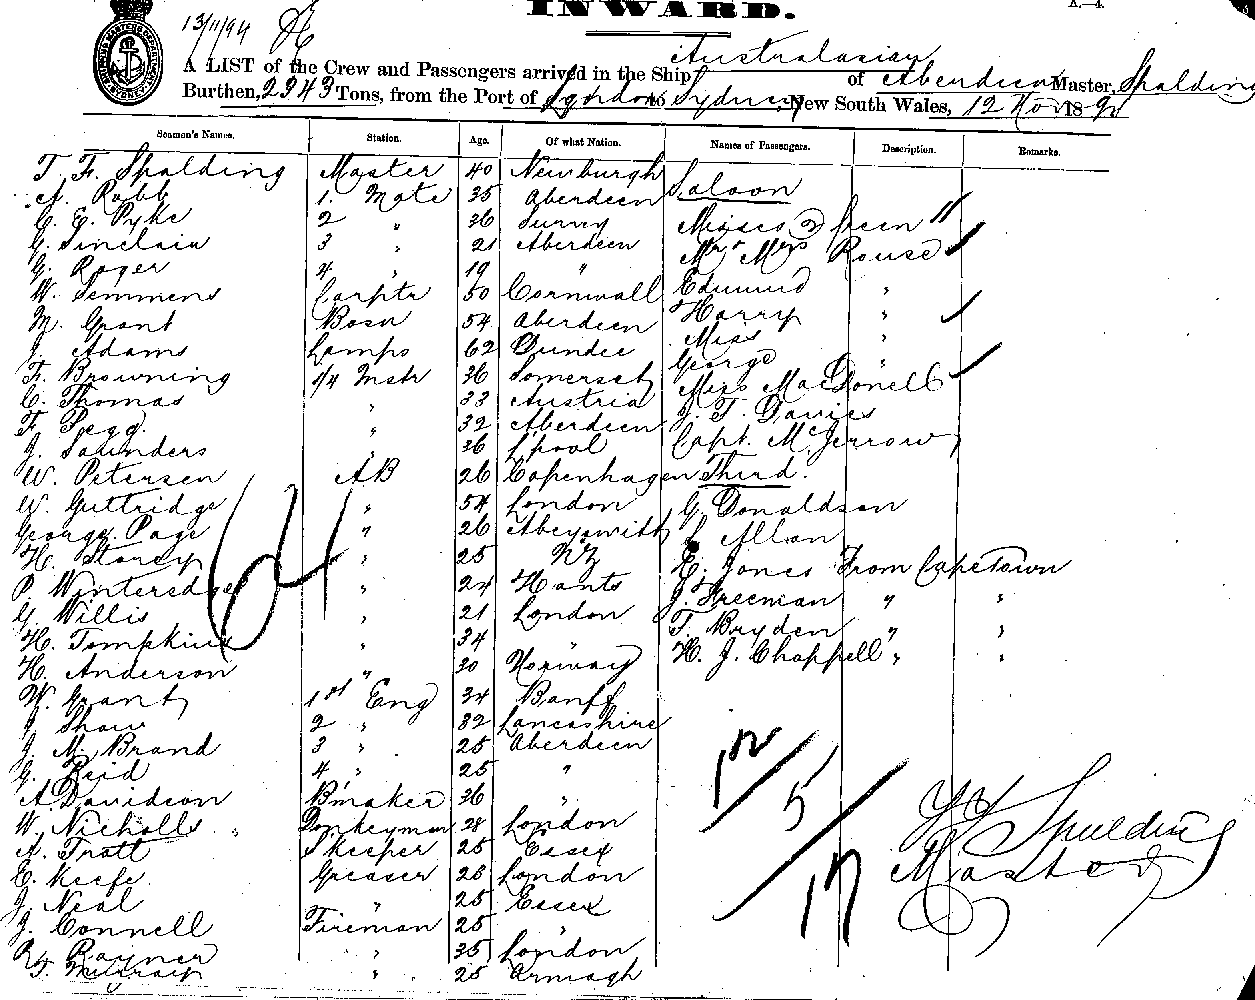 INWARD.
A.—4.
13/11/94
A LIST of the Crew and Passengers arrived in the Ship Australasian of Aberdeen Master, Spalding
Burthen, 2343 Tons, from the Port of London to Sydney, New South Wales, 12 Nov 189
Seamen's Names. Station. Age. Of what Nation. Names of Passengers. Description. Remarks.
T. F. Spalding Master 40 Newburgh Saloon
A. Robb 1. Mate 35 Aberdeen
C. E. Pyke 2 " 36 Surrey Misses 2 Green "
G. Sinclair 3 " 21 Aberdeen Mr & Mrs Rouse
G. Roger 4 " 19 "
W. Semmens Carptr 50 Cornwall Edmund "
M. Grant Bosn 54 Aberdeen Harry "
J. Adams Lamps 62 Dundee Miss "
F. Browning 1/4 Mstr 36 Somerset George "
C. Thomas " 33 Austria Miss MacDonell
F. Pegg. " 32 Aberdeen J. T. Davies
J. Saunders " 36 L'pool Capt. McJerrow
W. Petersen AB 26 Copenhagen Third.
W. Guttridge " 54 London G. Donaldson
George Page " 26 Abeyswith L Allan
H. Storey " 25 NZ E. Jones From CapeTown
P. Winteredge " 24 Hants J. Freeman " "
G. Willis " 21 London T. Bryden " "
H. Tompkins " 34 " H. J. Chappell " "
H. Anderson " 30 Norway
W. Grant 1st Eng 34 Banff
J Shaw 2 " 32 Lancashire
J. M. Brand 3 " 25 Aberdeen
G. Reid 4 " 25 "
A Davidson Bmaker 36 "
W. Nicholls Donkeyman 28 London
A. Tratt Skeeper 25 Essex
E. Keefe. Greaser 26 London
J. Neal " 25 Essex
J. Connell Fireman 25 "
Rayner " 35 London
" 25 Armagh
64
12
5
17
Spalding
Master